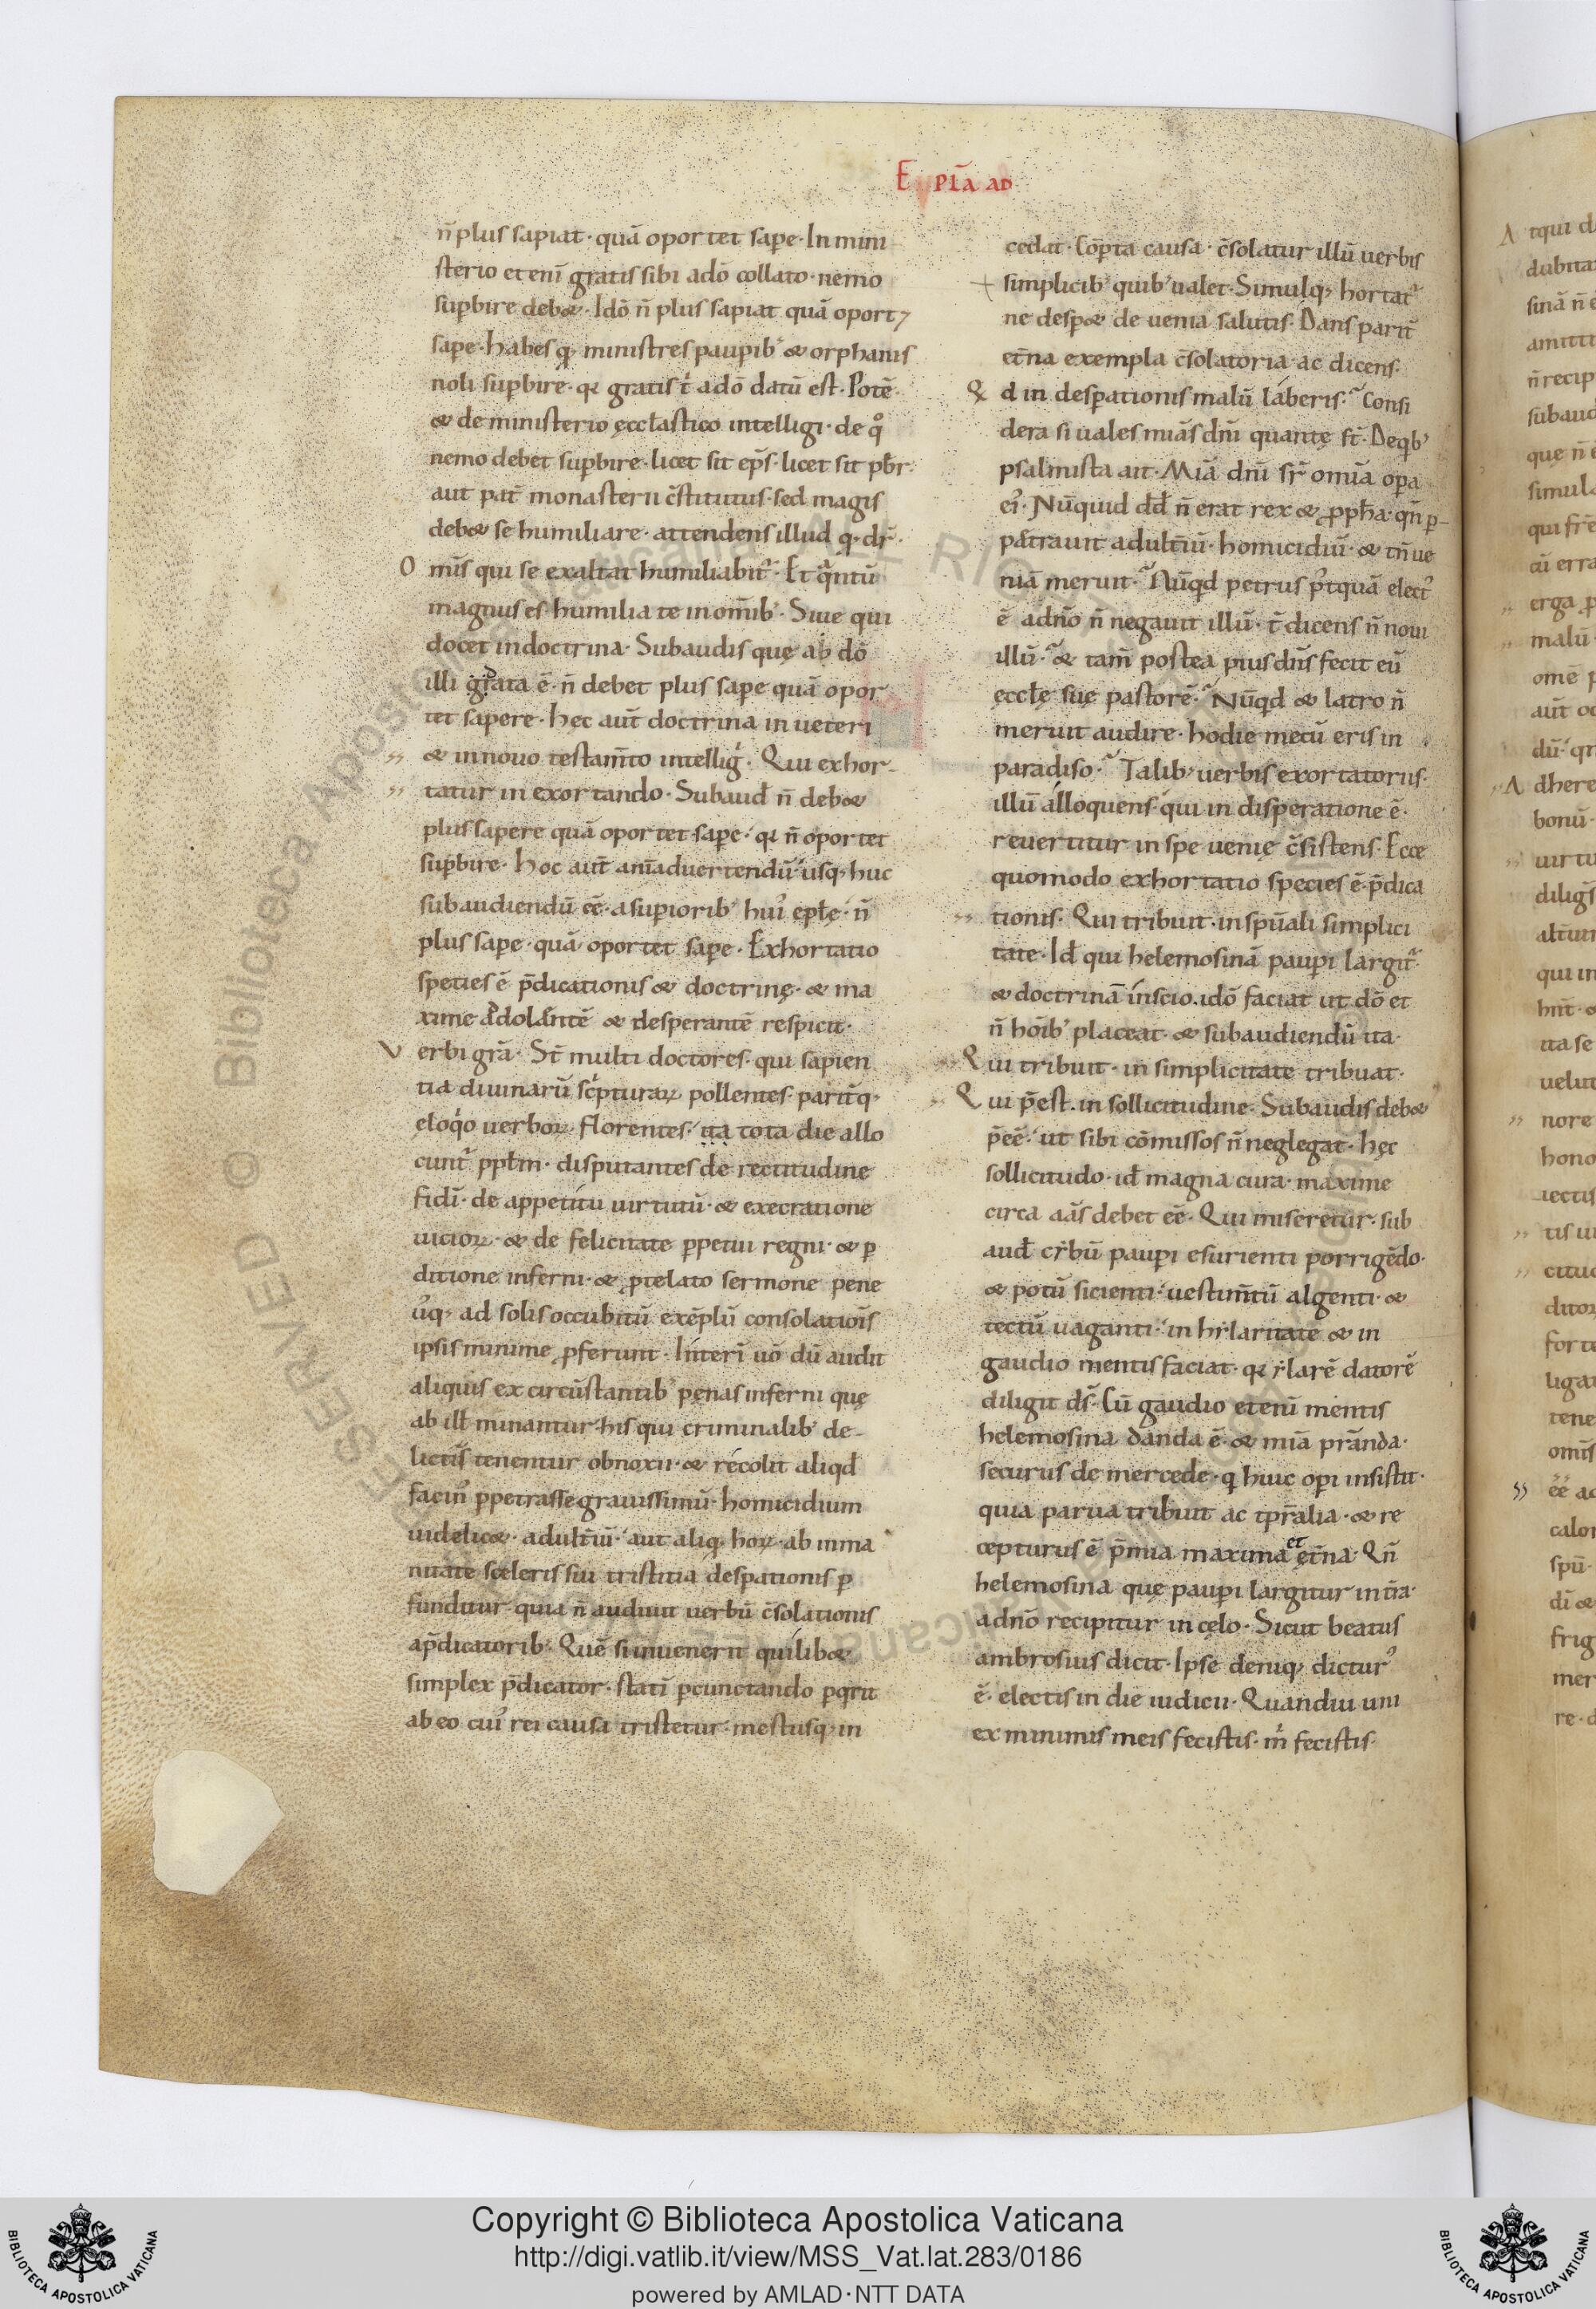 EPL̄A AD
n̄ plus sapiat· quā oportet sap̲e· In mini
sterio eteni gratis sibi adō collato· nemo
sup̲bire deb&· Idō n̄ plus sapiat quā oport⁊
sap̲e· habes q̨ ministres paup̲ib' & orphanis
noli sup̲bire· qꝛ gratis t̄ adō datū est· Potē
& de ministerio ęccl̄astico intelligi· de qͦ
nemo debet sup̲bire· licet sit ep̄s· licet sit pb̄r·
aut pat̄ monasterii c̄stitutus· sed magis
deb& se humiliare· attendens illud q̨ dr̄·
Om̄is qui se exaltat humiliabit᷑· Et qͣntū
magnus es· humilia te inom̄ib'· Siue qui
docet indoctrina· Subaudis quę ab dō
illi grata ē· n̄ debet plus sap̲e quā opor
tet sapere· hęc aut̄ doctrina in ueteri
& innouo testam̄to intelligͥ· Qui exhor-
tatur in exortando· Subaud̄ n̄ deb&
plus sapere quā oportet sap̲e· qꝛ n̄ oportet
sup̲bire· hoc aut̄ anīaduertendū· usq; huc
subaudiendū eē· asup̲iorib' hui' epl̄ę· n̄
plus sap̲e· quā oportet sap̲e· Exhortatio
speties ē p̄dicationis & doctrinę· & ma
xime adolāntē & desperantē respicit·
Verbi grā· St̄ multi doctores· qui sapien
tia diuinarū scͥpturaꝝ pollentes· parit̄q;
eloqͥo uerboꝝ florentes· ita tota die allo
cunt᷑ ppl̄m· disputantes de rectitudine
fidī· de appetitu uirtutū· & execratione
uicioꝝ· & de felicitate p̲petui regni· & p̲
ditione inferni· & ꝓtelato sermone pene
us̄q; ad solis occubitū exēplū consolatiōis
ipsis minime ꝓferunt· Interī uō dū audit
aliquis ex circūstantib' pęnas inferni quę
ab ill̄ minantur his qui criminalib' de-
lictis tenentur obnoxii· & recolit aliqd̄
facin' p̲petrasse grauissimū· homicidium
uidelic&· adult̄iū· aut aliq̨ hoꝝ· ab inma
nitate sceleris sui tristitia desp̲ationis p̲
funditur· quia n̄ audiuit uerbū c̄solationis
ap̄dicatorib'· Quē si inuenerit quilib&
simplex p̄dicator· statī p̲cunctando p̲qͥrit
ab eo cui' rei causa tristetur· mestusq; in
cedat· Cōp̲ta causa· c̄solatur illū uerbis
simplicib' quib' ualet· Simulq; hortat᷑
ne desp̲& de uenia salutis· Dans parit̄
et̄na exempla c̄solatoria· ac dicens·
Qd in desp̲ationis malū laberis· Consi
dera si uales mīas dn̄i quantę st̄· Deqb'
psalmista ait· Mīa dn̄i sup̄ omīa op̲a
ei'· Nūquid dd̄ n̄ erat rex & ꝓph̄a· qn̄ p̲
pat̄rauit adult̄iū· homicidiū· & tn̄ ue
niā meruit· Nūqd petrus p'tquā elect'
ē adnō n̄ negauit illū· t̄ dicens n̄ noui
illū· & tam̄ postea pius dn̄s fecit eū
ęccl̄ę suę pastorē· Nūqd & latro n̄
meruit audire· hodie mecū eris in
paradiso· Talib; uerbis exortatorus·
illū alloquens· qui in disp̲eratione ē·
reuertitur in spe uenię c̄sistens· Ecce
quomodo exhortatio species ē p̄dica
tionis· Qui tribuit· in spūali simplici
tate· Id̄ qui helemosinā paup̲i largit᷑·
& doctrinā inscio· idō faciat ut dō et
n̄ hōib' placeat· & subaudiendū ita·
Qui tribuit· in simplicitate tribuat·
Qui p̄est· in sollicitudine· Subaudis deb&
p̄eē· ut sibi cōmissos n̄ neglegat· hęc
sollicitudo· id̄ magna cura· maxime
circa aās debet eē· Qui miseretur· sub
aud̄ cybū paup̲i esurienti porrigēdo·
& potū sicienti· uestim̄tū algenti· &
tectū uaganti· in hylaritate & in
gaudio mentis faciat· qꝛ ylarē datorē
diligit ds̄· Cū gaudio etenī mentis
helemosina danda ē· & mīa prānda·
securus de mercede· q̨ huic op̲i insistit·
quia parua tribuit ac tp̄ralia· & re
cepturus ē p̄mia maxima et ęt̄na· Qn̄
helemosina quę paup̲i largitur int̄ra·
adnō recipitur in cęlo· Sicut beatus
ambrosius dicit· Ipse deniq; dictur'
ē· electis in die iudicii· Quandiu uni
ex minimis meis fecistis· mͥ fecistis·
Copyright © Biblioteca Apostolica Vaticana
http://digi.vatlib.it/view/MSS_Vat.lat.283/0186
powered by AMLAD·NTT DATA
BIBLIOTECA APOSTOLICA VATICANA
BIBLIOTECA APOSTOLICA VATICANA